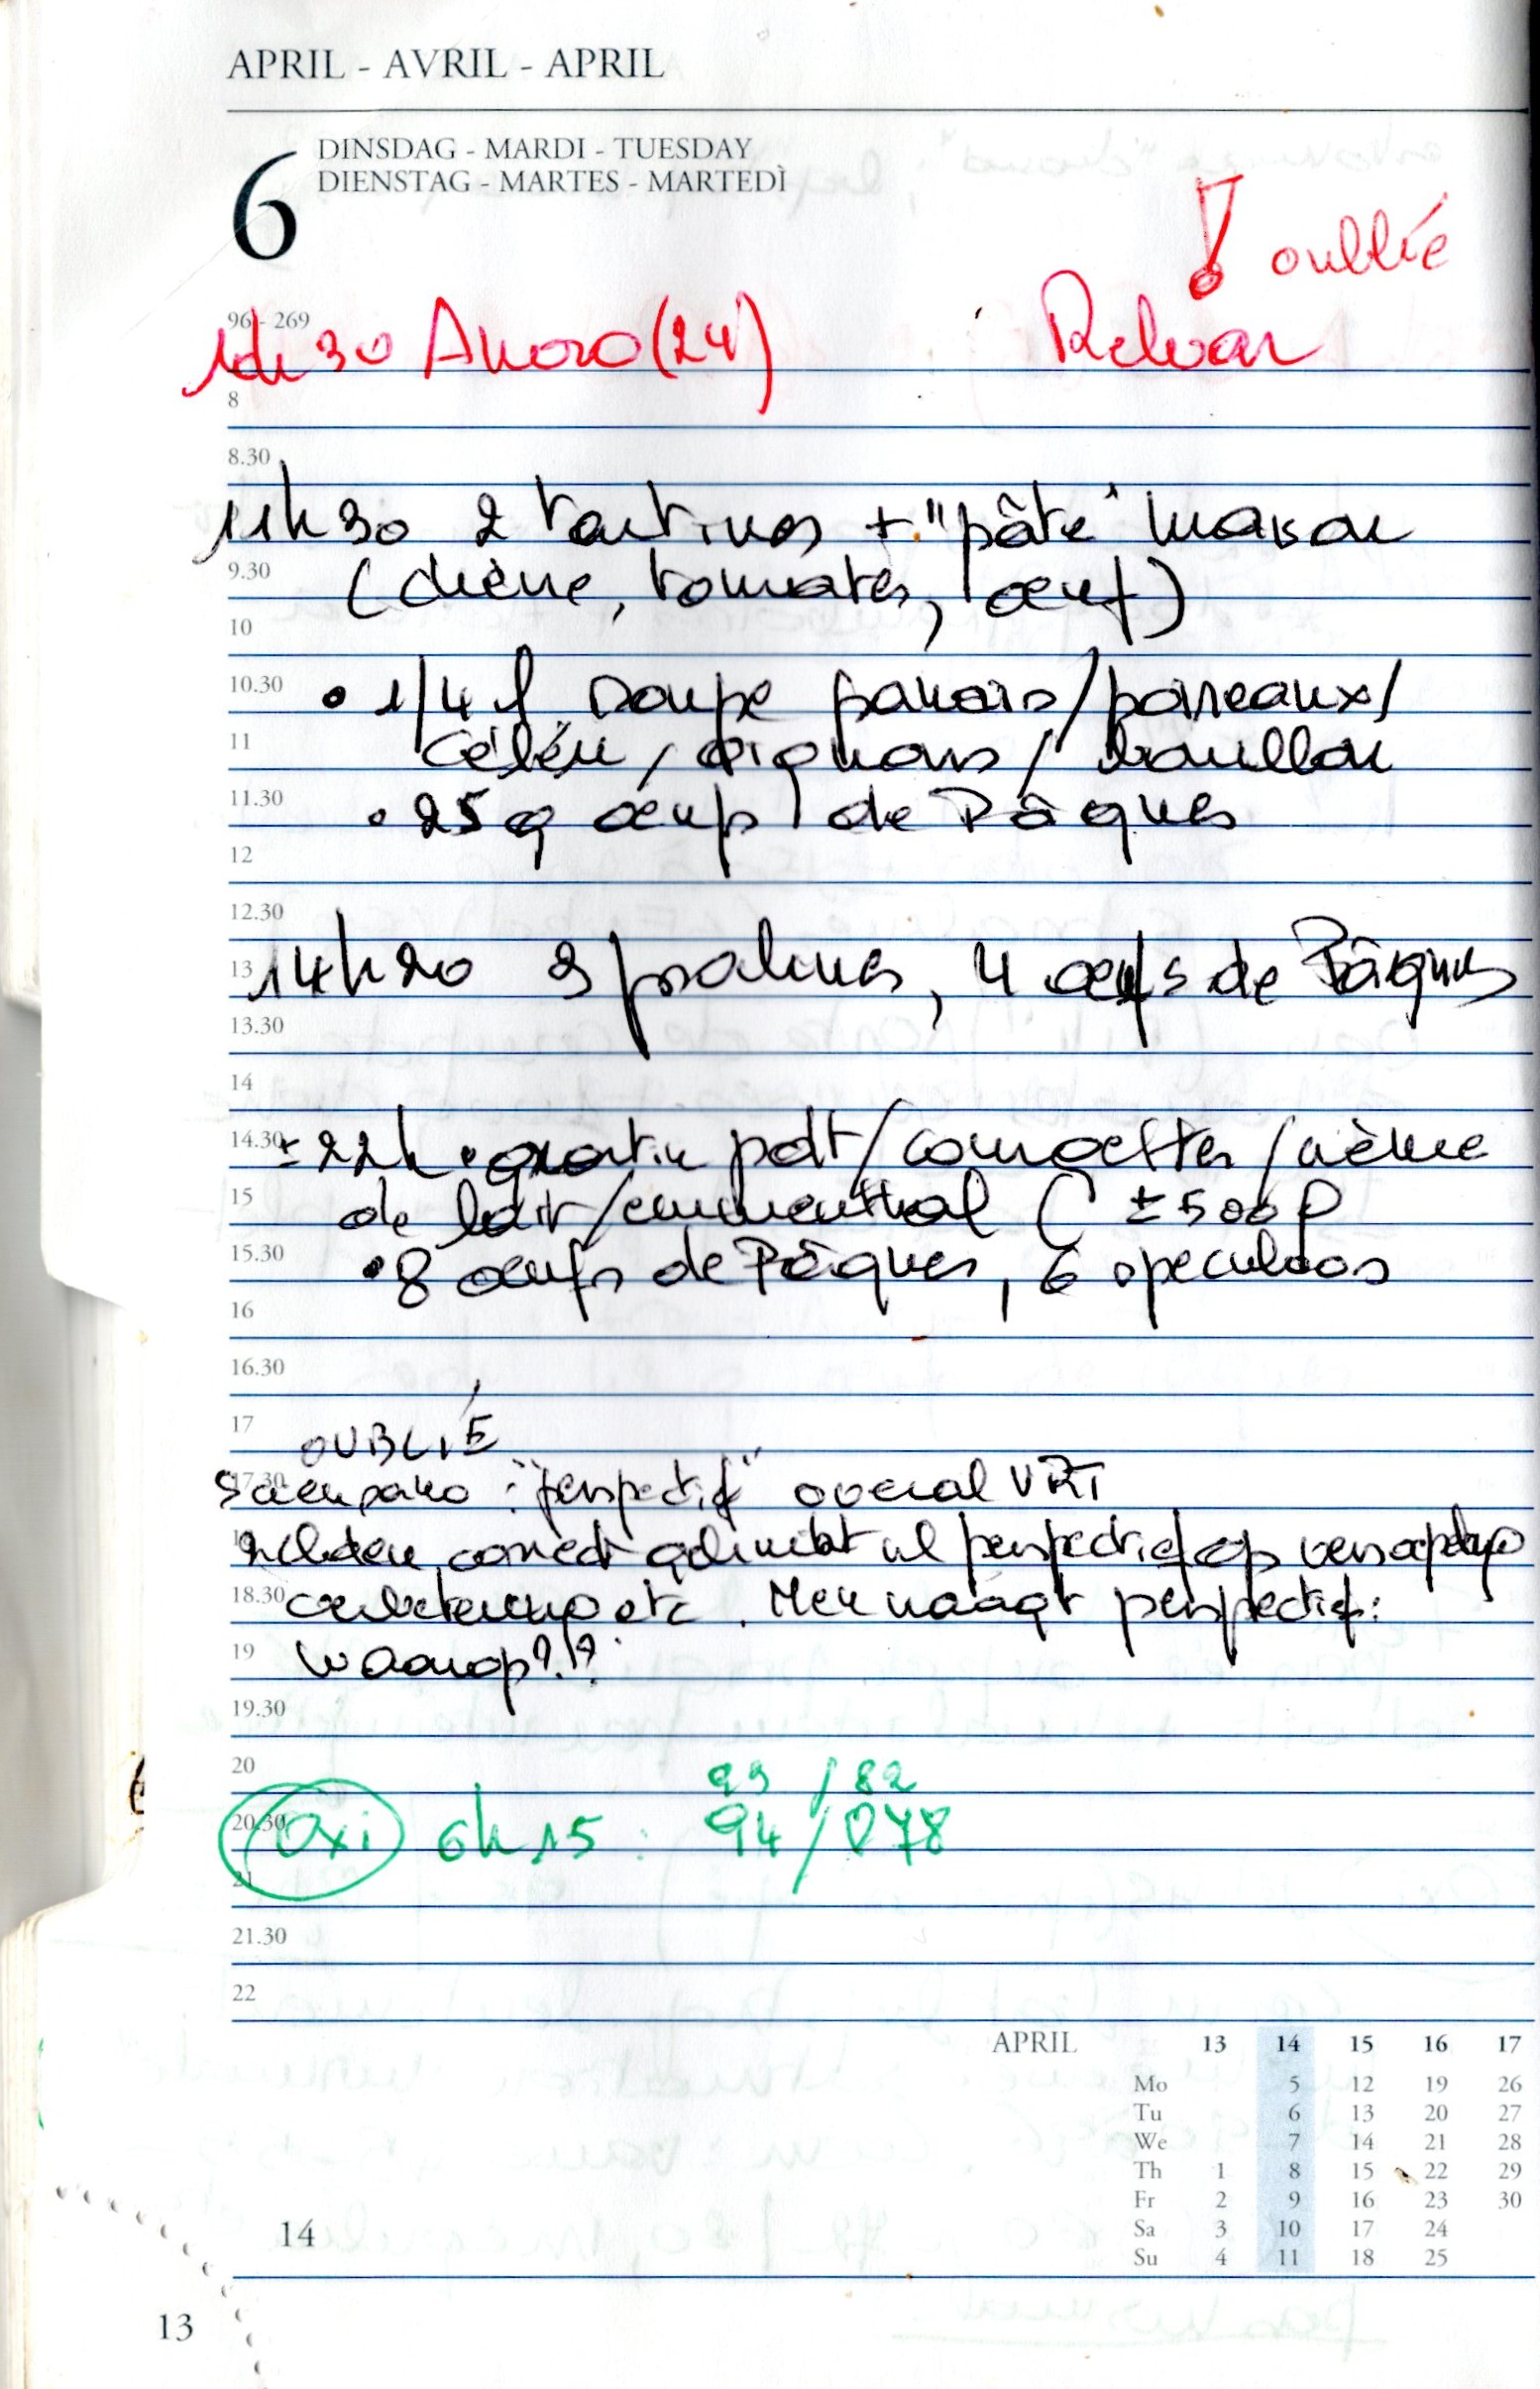 APRIL - AVRIL - APRIL
6
DINSDAG - MARDI - TUESDAY
DIENSTAG - MARTES - MARTEDÌ
! oublié
96 - 269
1h30 Anoro (24) Relvar
8
8.30
11h30 2 tartines + "pâté" maison
9.30
(chèvre, tomates, œuf)
10
10.30
• 1/4 l soupe panais/poireaux/
11
céleri / oignons / bouillon
11.30
• 25 g œufs de Pâques
12
12.30
13
14h20 3 pralines, 4 œufs de Pâques
13.30
14
14.30
± 22h • gratin pdt/courgettes/crème
15
de lait/emmenthal ( ± 500 
15.30
• 8 œufs de Pâques, 6 speculoos
16
16.30
17
OUBLIÉ
17.30
: "perspectief" overal VRT
perspectief op
18.30
etc. Men vraagt perspectief:
19
waarop?!?
19.30
20
93 / 82
20.30
Oxi 6h15 : 94 / 078
21
21.30
22
APRIL 13 14 15 16 17
Mo 5 12 19 26
Tu 6 13 20 27
We 7 14 21 28
Th 1 8 15 22 29
Fr 2 9 16 23 30
Sa 3 10 17 24
Su 4 11 18 25
14
13